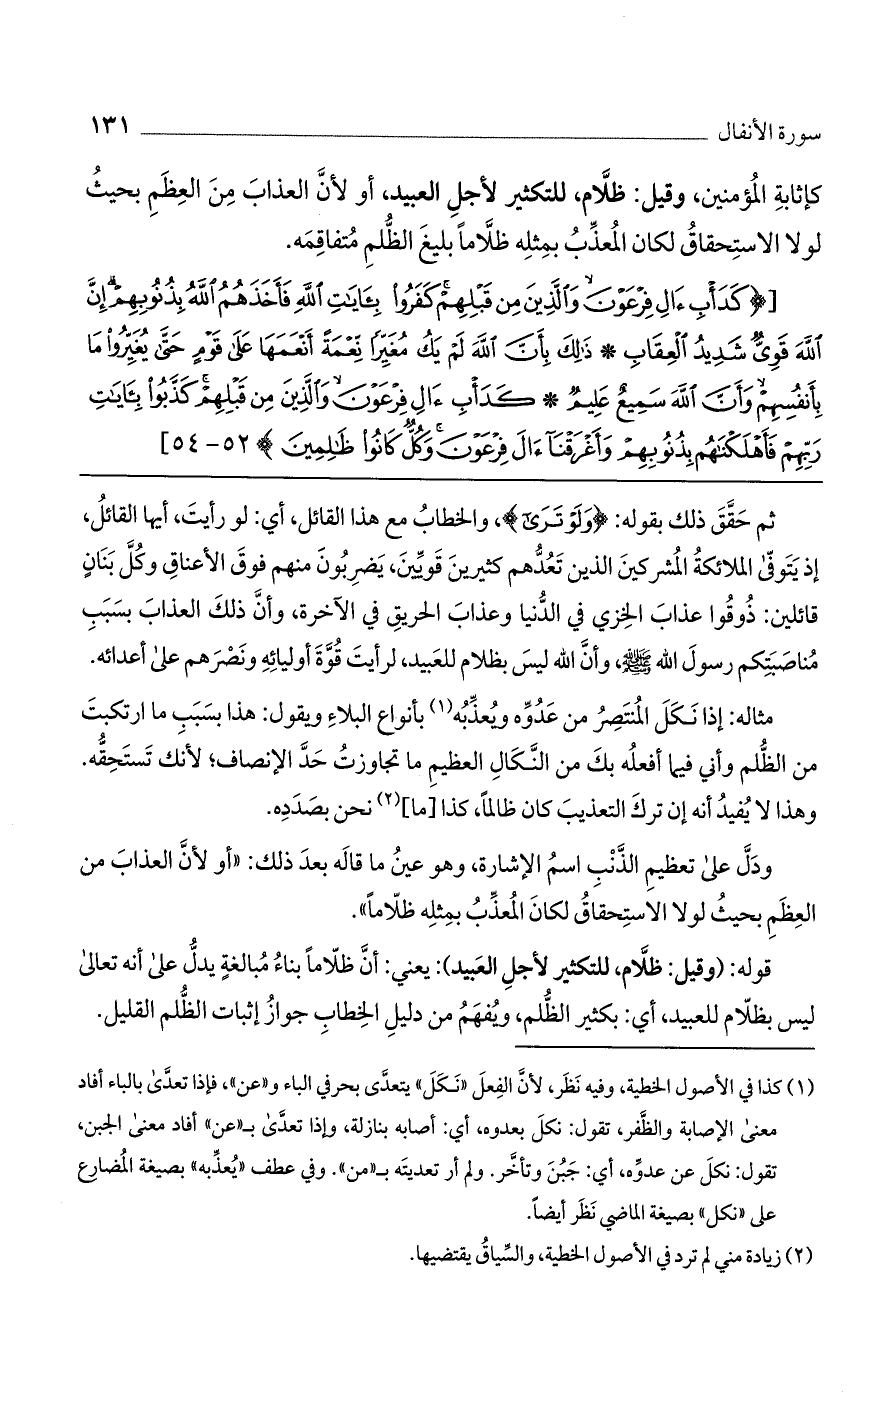 سورة الأنفال ١٣١
كإثابةِ المُؤمنين، وقيل: ظلَّام، للتكثير لأجلِ العبيد، أو لأنَّ العذابَ مِنَ العِظَمِ بحيثُ
لولا الاستِحقاقُ لكان المُعذِّبُ بمِثلِه ظلَّاماً بليغَ الظُّلمِ مُتفاقِمَه.
[﴿كَدَأْبِ ءَالِ فِرْعَوْنَ ۙ وَٱلَّذِينَ مِن قَبْلِهِمْ ۚ كَفَرُوا۟ بِـَٔايَـٰتِ ٱللَّهِ فَأَخَذَهُمُ ٱللَّهُ بِذُنُوبِهِمْ ۗ إِنَّ
ٱللَّهَ قَوِىٌّ شَدِيدُ ٱلْعِقَابِ * ذَٰلِكَ بِأَنَّ ٱللَّهَ لَمْ يَكُ مُغَيِّرًا نِّعْمَةً أَنْعَمَهَا عَلَىٰ قَوْمٍ حَتَّىٰ يُغَيِّرُوا۟ مَا
بِأَنفُسِهِمْ ۙ وَأَنَّ ٱللَّهَ سَمِيعٌ عَلِيمٌ * كَدَأْبِ ءَالِ فِرْعَوْنَ ۙ وَٱلَّذِينَ مِن قَبْلِهِمْ ۚ كَذَّبُوا۟ بِـَٔايَـٰتِ
رَبِّهِمْ فَأَهْلَكْنَـٰهُم بِذُنُوبِهِمْ وَأَغْرَقْنَآ ءَالَ فِرْعَوْنَ ۚ وَكُلٌّ كَانُوا۟ ظَـٰلِمِينَ﴾ ٥٢-٥٤]
ثم حَقَّقَ ذلك بقوله: ﴿وَلَوْ تَرَىٰٓ﴾، والخطابُ مع هذا القائل، أي: لو رأيتَ، أيها القائلُ،
إذ يَتَوفّىٰ الملائكةُ المُشركينَ الذين تَعُدُّهم كثيرينَ قويِّينَ، يَضرِبُونَ منهم فوقَ الأعناقِ وكُلَّ بَنَانٍ
قائلين: ذُوقُوا عذابَ الخِزي في الدُّنيا وعذابَ الحريقِ في الآخرة، وأنَّ ذلكَ العذابَ بسَبَبِ
مُناصَبَتِكم رسولَ الله ﷺ، وأنَّ الله ليسَ بظلام للعَبيد، لرأيتَ قُوَّةَ أوليائِهِ ونَصْرَهم علىٰ أعدائه.
مثاله: إذا نَكَلَ المُنتَصِرُ من عَدُوِّه ويُعذِّبُه(١) بأنواع البلاءِ ويقول: هذا بسَبَبِ ما ارتكبتَ
من الظُّلم وأني فيما أفعلُه بكَ من النَّكَالِ العظيمِ ما تجاوزتُ حَدَّ الإنصاف؛ لأنك تَستَحِقُّه.
وهذا لا يُفيدُ أنه إن تركَ التعذيبَ كان ظالماً، كذا [ما](٢) نحن بصَدَدِه.
ودَلَّ علىٰ تعظيمِ الذَّنْبِ اسمُ الإشارة، وهو عينُ ما قالَه بعدَ ذلك: «أو لأنَّ العذابَ من
العِظَمِ بحيثُ لولا الاستِحقاقُ لكانَ المُعذِّبُ بمِثلِه ظلّاماً».
قوله: (وقيل: ظلَّام، للتكثير لأجلِ العَبيد): يعني: أنَّ ظلّاماً بناءُ مُبالغةٍ يدلُّ علىٰ أنه تعالىٰ
ليس بظلّام للعبيد، أي: بكثير الظُّلم، ويُفهَمُ من دليلِ الخِطابِ جوازُ إثبات الظُّلم القليل.
(١) كذا في الأصول الخطية، وفيه نَظَر، لأنَّ الفِعلَ «نَكَلَ» يتعدَّى بحرفي الباء و«عن»، فإذا تعدَّىٰ بالباء أفاد
معنىٰ الإصابة والظَّفر، تقول: نكلَ بعدوه، أي: أصابه بنازلة، وإذا تعدَّىٰ بـ«عن» أفاد معنىٰ الجبن،
تقول: نكلَ عن عدوِّه، أي: جَبُنَ وتأخَّر. ولم أر تعديتَه بـ«من». وفي عطف «يُعذِّبه» بصيغة المُضارع
على «نكل» بصيغة الماضي نَظَر أيضاً.
(٢) زيادة مني لم ترد في الأصول الخطية، والسِّياقُ يقتضيها.